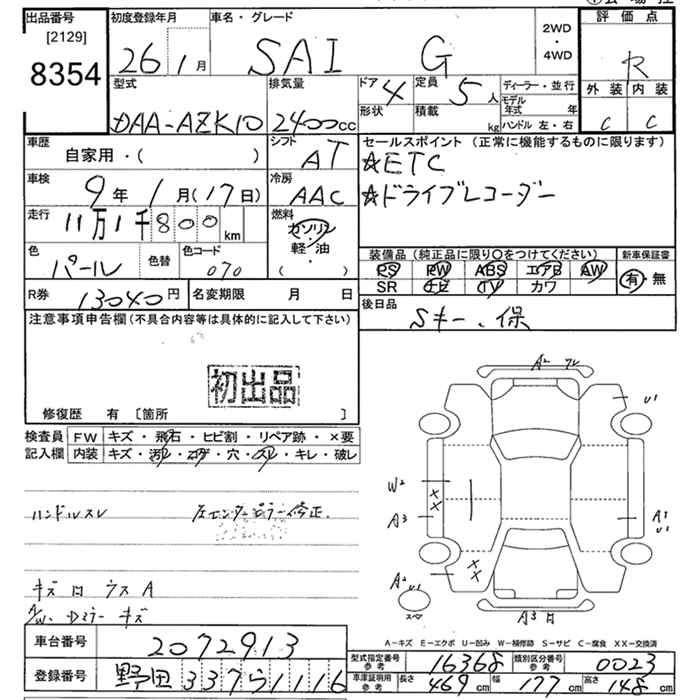 出品番号
[2129]
8354
初度登録年月
26 1月
車名・グレード
SAI G
2WD
・
4WD
評価点
R
外装 内装
C C
型式
DAA-AZK10
排気量
2400cc
ドア 4
形状
定員 5人
積載 kg
ディーラー・並行
モデル年式 年
ハンドル 左・右
車歴
自家用・( )
シフト
AT
車検
9年 1月(17日)
冷房
AAC
走行
11万1千800km
燃料
ガソリン
軽・油
( )
色
パール
色替
色コード
070
R券 13040円
名変期限 月 日
セールスポイント (正常に機能するものに限ります)
☆ETC
☆ドライブレコーダー
装備品(純正品に限り○をつけてください)
PS PW ABS エアB AW
SR ナビ TV カワ
新車保証書
有・無
後日品
Sキー、保
注意事項申告欄(不具合内容等は具体的に記入して下さい)
初出品
修復歴 有 [箇所 ]
検査員記入欄
FW キズ・飛石・ヒビ割・リペア跡・×要
内装 キズ・汚レ・コゲ・穴・スレ・キレ・破レ
ハンドルスレ
左センターピラー修正
キズ凹 ウスA
A/W・Dミラーキズ
A2
U1
W2
XX
A3
A1
U1
XX
A2
U1
スペア
A3凹
A-キズ E-エクボ U-凹み W-補修跡 S-サビ C-腐食 XX-交換済
車台番号
2072913
登録番号
野田 337 ら 1116
型式指定番号 参考
16368
類別区分番号 参考
0023
車庫証明用 参考
長さ 469cm 幅 177cm 高さ 148cm